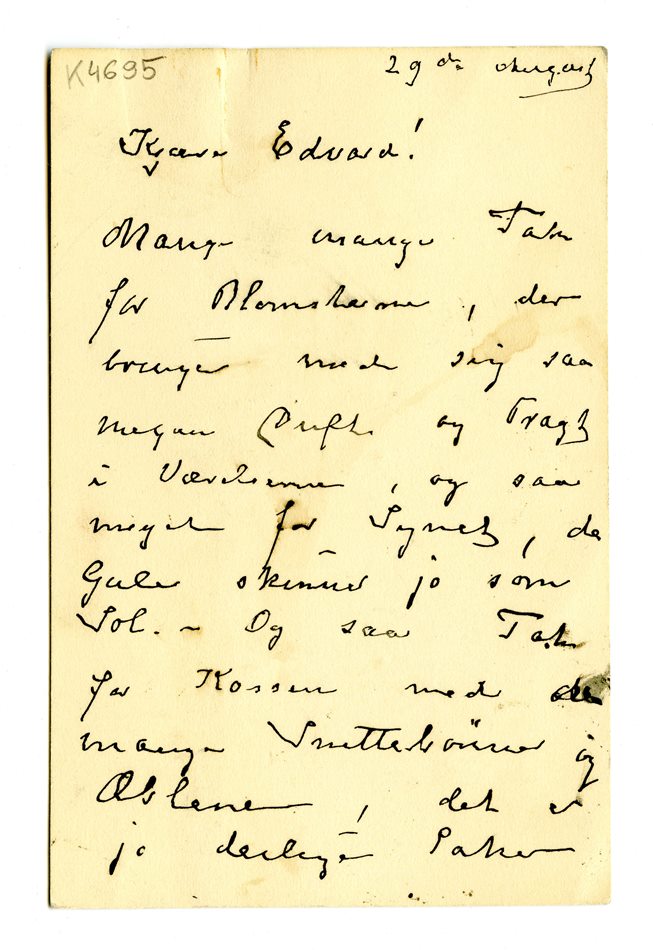 K4695
29de August
Kjære Edvard!
Mange mange Tak
for Blomsterne, der
bringer med sig saa
megen Dufte og Pragt
i Værelserne, og saa
meget for Synet, de
Gule skinner jo som
Sol. - Og saa Tak
for Kassen med de
mange Snittebönner og
Æblene, det er
jo deilige Saker